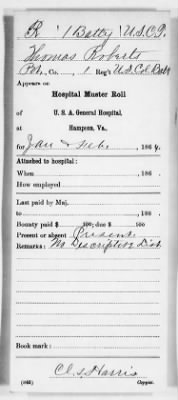 R | 1 Batty | U.S.C.T.
Thomas Roberts
Pvt., Co. , 1 Reg't U.S. Col. Batty
Appears on
Hospital Muster Roll
of
U. S. A. General Hospital,
at
Hampton, Va.,
for Jan & Feb., 1866.
Attached to hospital:
When , 186 .
How employed
Last paid by Maj.
to , 186 .
Bounty paid $ 100; due $ 100
Present or absent Present
Remarks: No Descriptive List
Book mark:
Harris
Copyist.